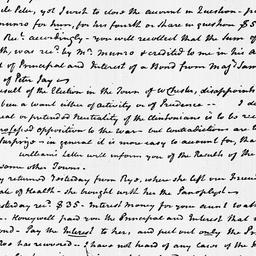 de Peter, yet I wish to close the account in Question - pr
unro for him, for his fourth or share in question $5
Rec.t accordingly - you will recollect that the sum of
th, was rec.d by Mr. Munro & credited to me in his a
of Principal and Interest of a Bond from Majr. Sam
of Peter Jay
esult of the Election in the Town of W Chester, disappoints
been a want either of activity or of Prudence - I de
real or pretended Neutrality of the Clintonians is to be rec
professed opposition to the war - but contradictions are to
Surprize - in general it is more easy to account for, tha
William's Letter will inform you of the Result of the
some other Towns.
y returned Yesterday from Rye, where she left our Friend
ate of Health - she brought with her the Panoplyst
sterday rec.d $35 - Interest Money for your aunt
Honeywell paid you the Principal and Interest that
ond - Pay the Interest to her, and put out only the Pr
has recovered - I have not heard of any Cases of the